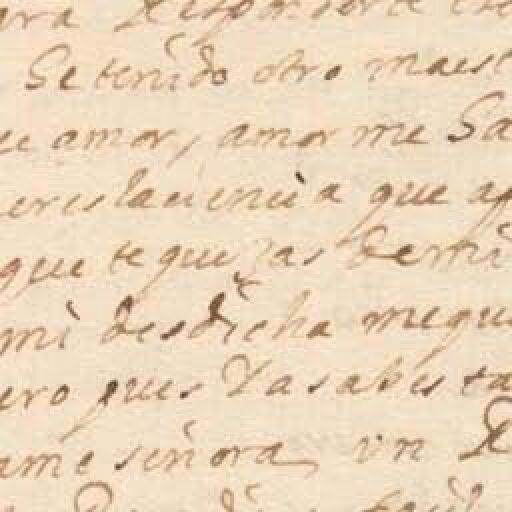 ara Responderte
Se tenido otro maest
ue amor, amor me Sa
eres la ciencia que ap
que te quexas de mi
mi desdicha me que
ero pues Ya sabes ta
ame señora, un